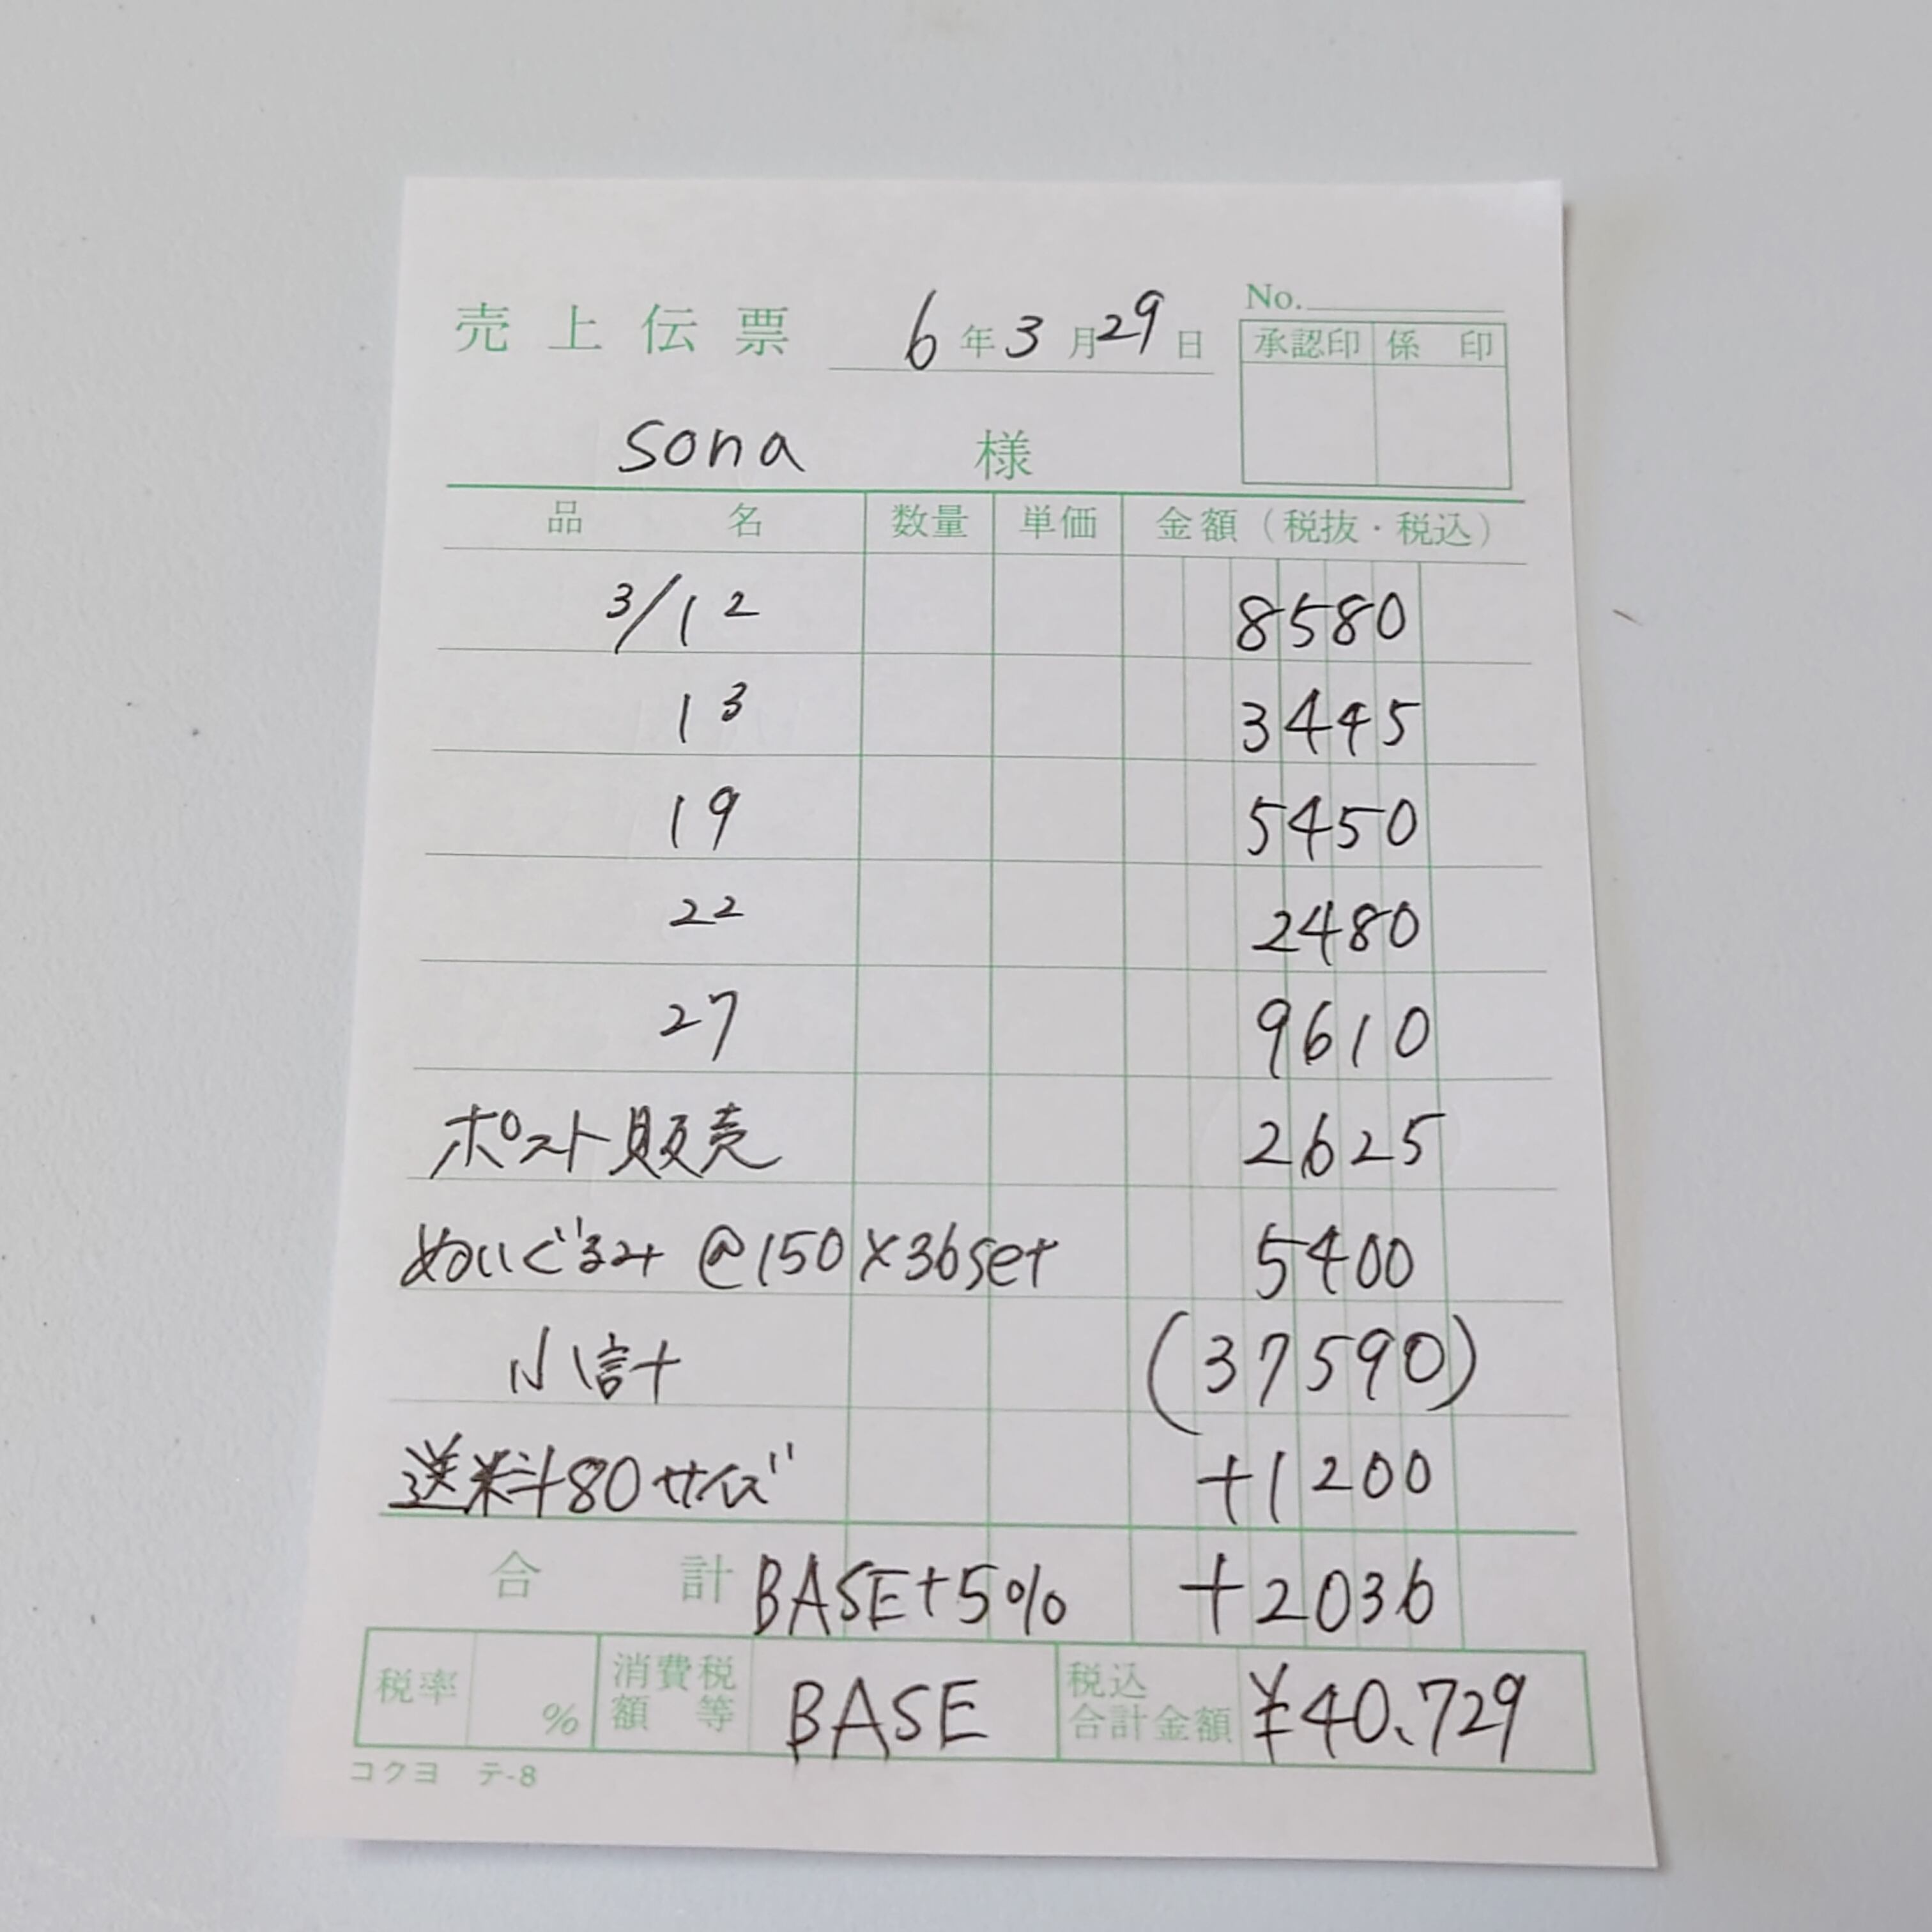 売上伝票 6年3月29日 No.
承認印 係印
sona 様
品名 数量 単価 金額(税抜・税込)
3/12 8580
13 3445
19 5450
22 2480
27 9610
ポスト販売 2625
ぬいぐるみ @150×36set 5400
小計 (37590)
送料80サイズ +1200
合計 BASE+5% +2036
税率 % 消費税額等 BASE 税込合計金額 ¥40.729
コクヨ テ-8